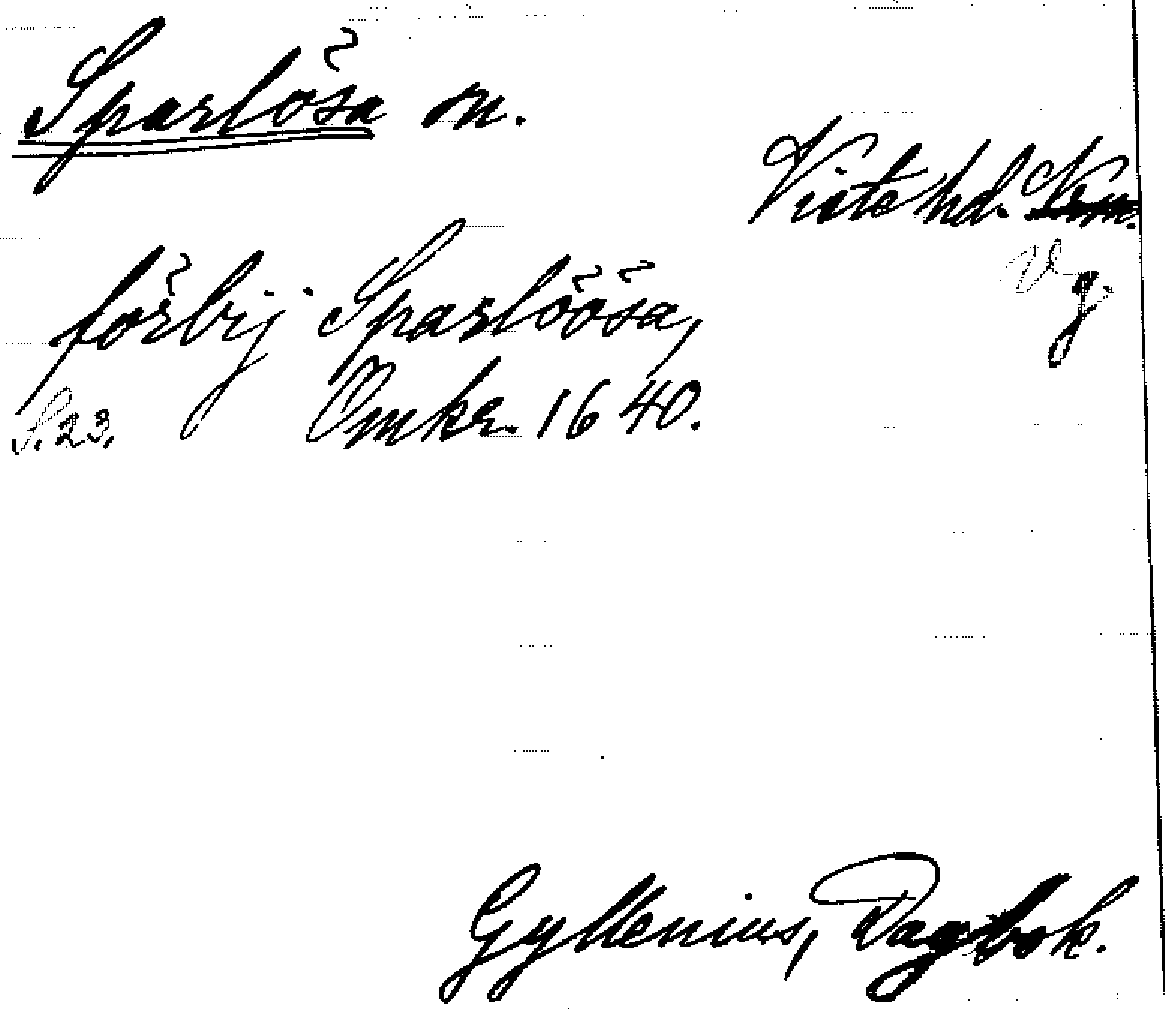 Sparlösa sn.
Viste hd.
Vg.
förbij Sparlöösa,
S. 23. Omkr. 1640.
Gyllenius, Dagbok.